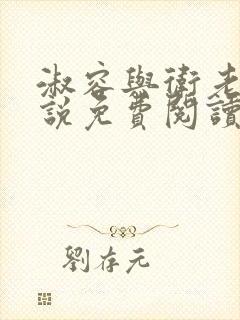 淑容與衛老
說免費閱讀
劉存元